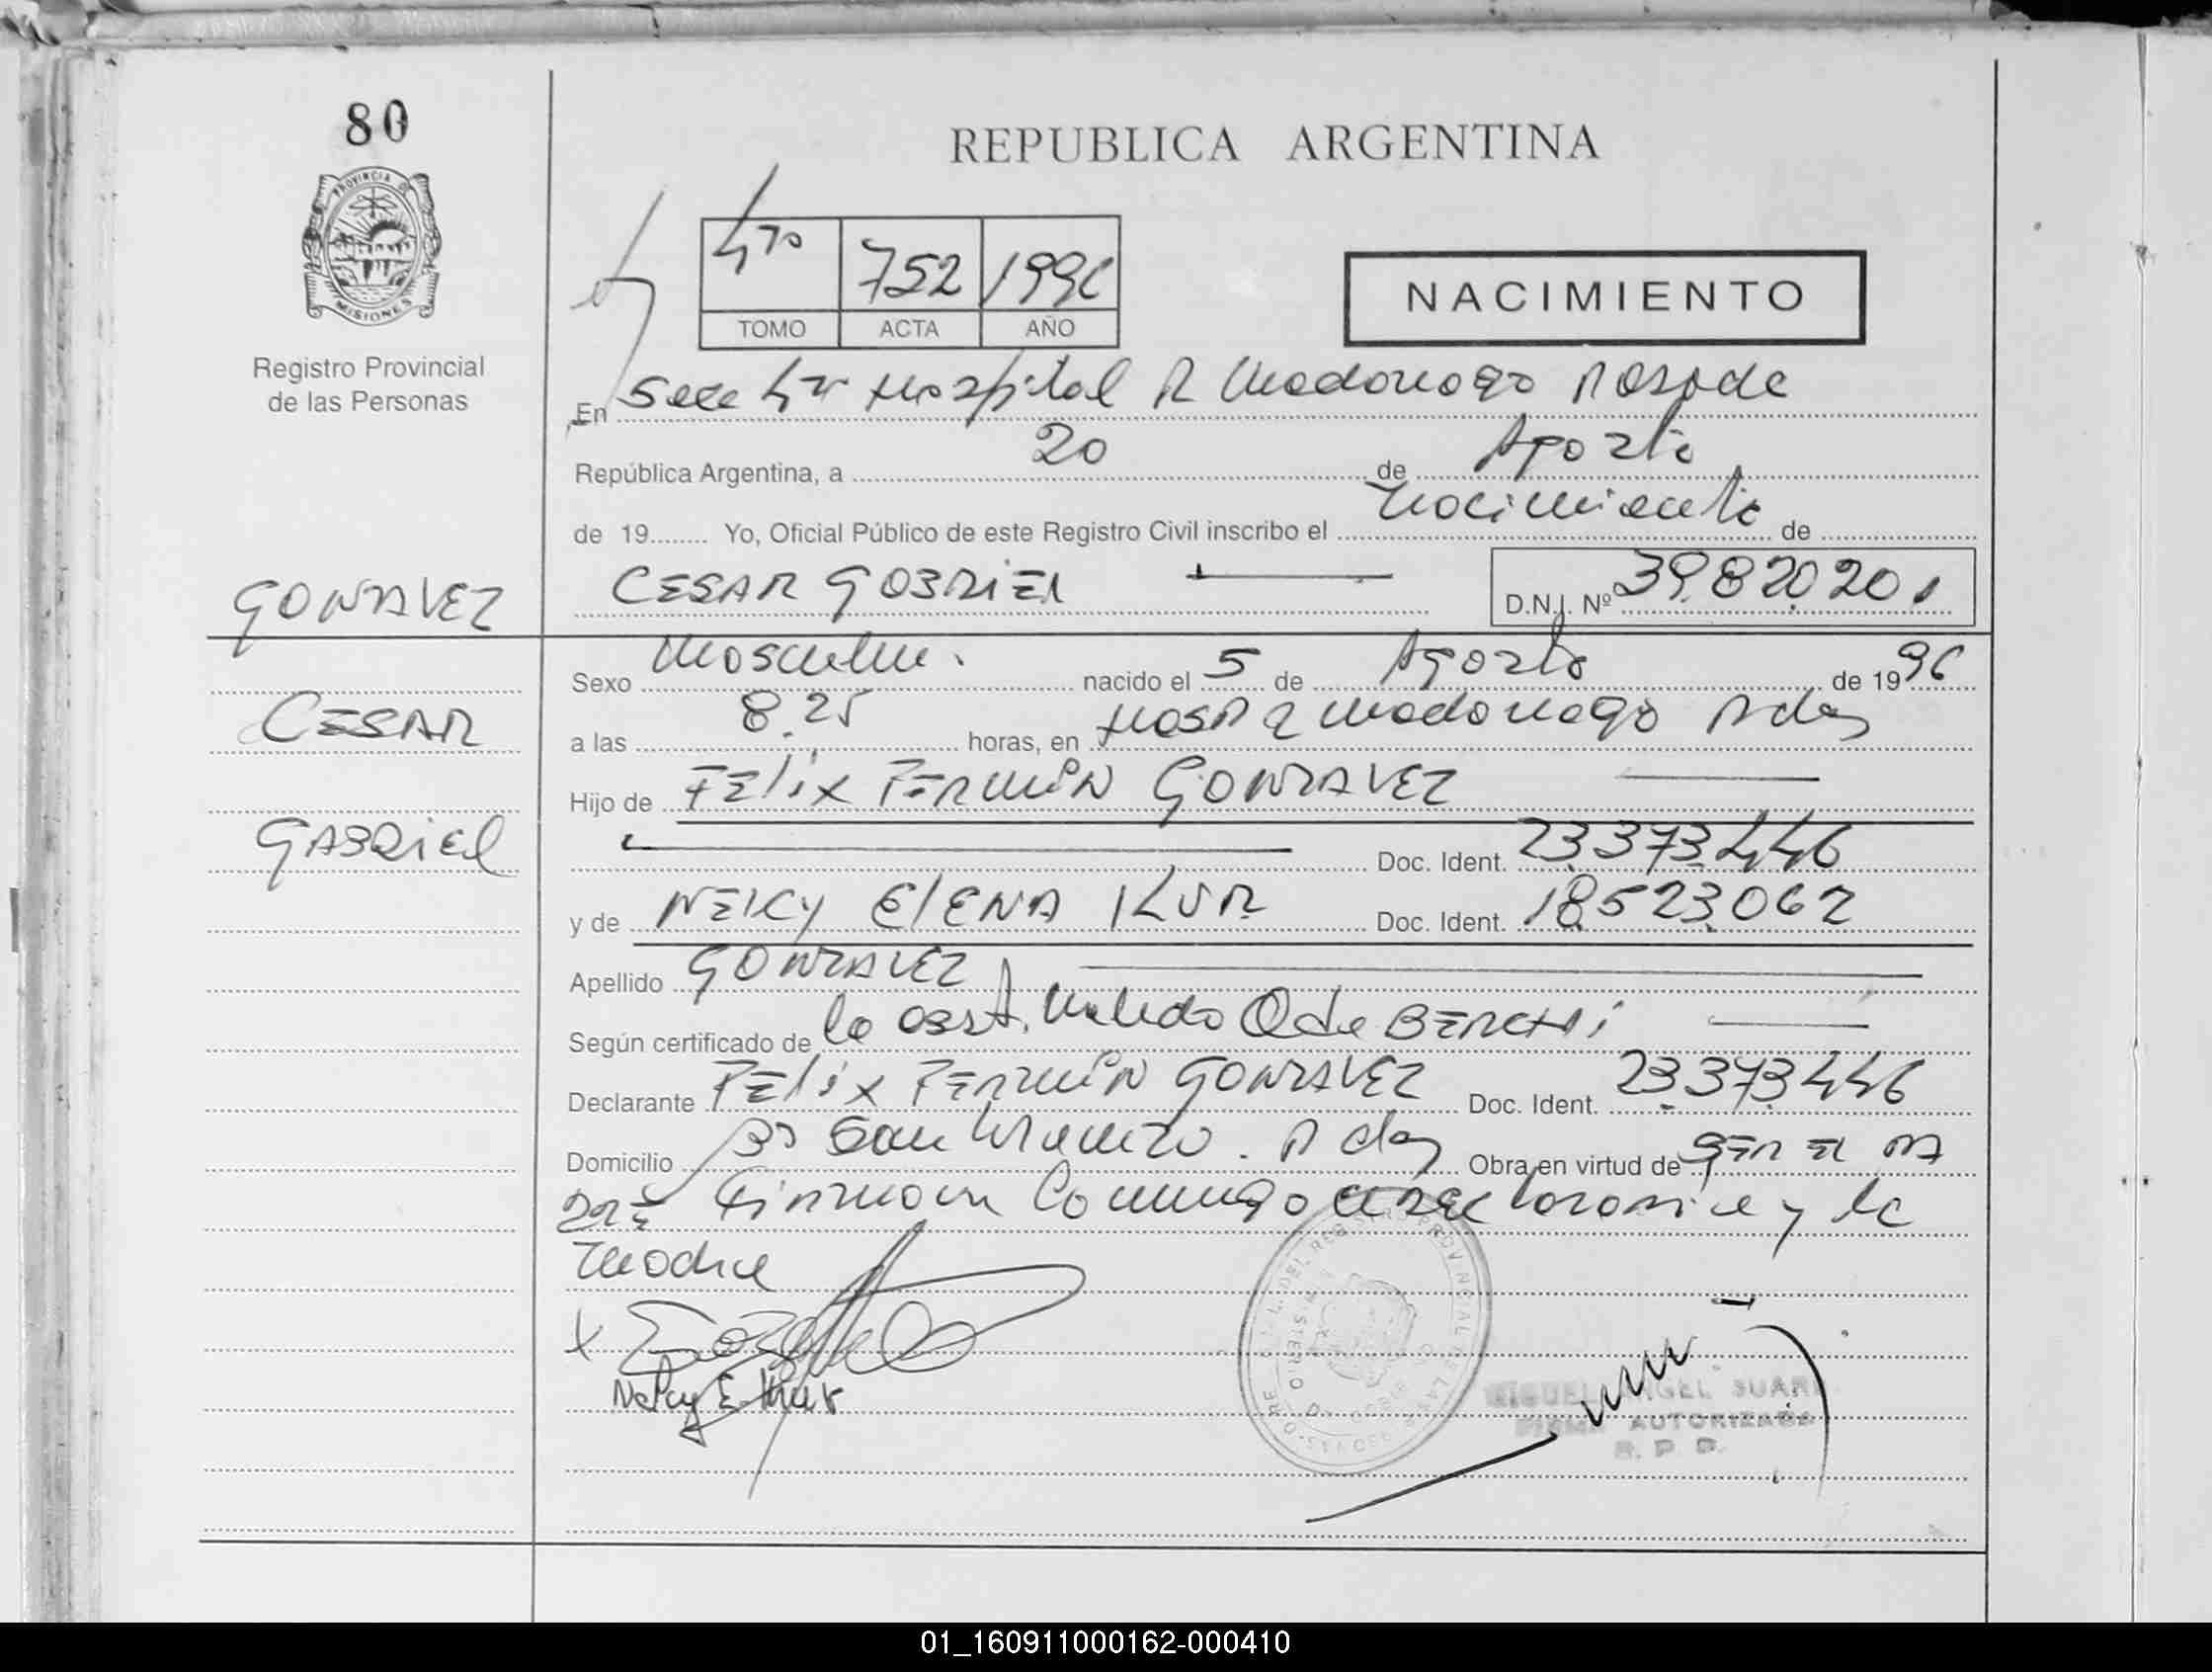 80
REPUBLICA ARGENTINA
PROVINCIA DE
MISIONES
4to 752 1996
TOMO ACTA AÑO
NACIMIENTO
Registro Provincial
de las Personas
En Secc 4ta Hospital R Madariaga Posadas
República Argentina, a 20 de Agosto
de 19........ Yo, Oficial Público de este Registro Civil inscribo el nacimiento de
GONZALVEZ
CESAR GABRIEL
D.N.I. Nº 39.820.201
Sexo Masculino. nacido el 5 de Agosto de 1996
CESAR
a las 8.25 horas, en Hosp R Madariaga Pdas
Hijo de FELIX FERMIN GONZALVEZ
GABRIEL
Doc. Ident. 23.373.446
y de NELCY ELENA KUR Doc. Ident. 18.523.062
Apellido GONZALVEZ
Según certificado de la obst. Nélida Q de BERCHI
Declarante FELIX FERMIN GONZALVEZ Doc. Ident. 23.373.446
Domicilio Bº San Lorenzo. Pdas Obra en virtud de SER EL PA
DRE Firman conmigo y la
madre
Nelcy E. Kur
MIGUEL ANGEL SUAR
FIRMA AUTORIZADA
R. P. P.
01_160911000162-000410